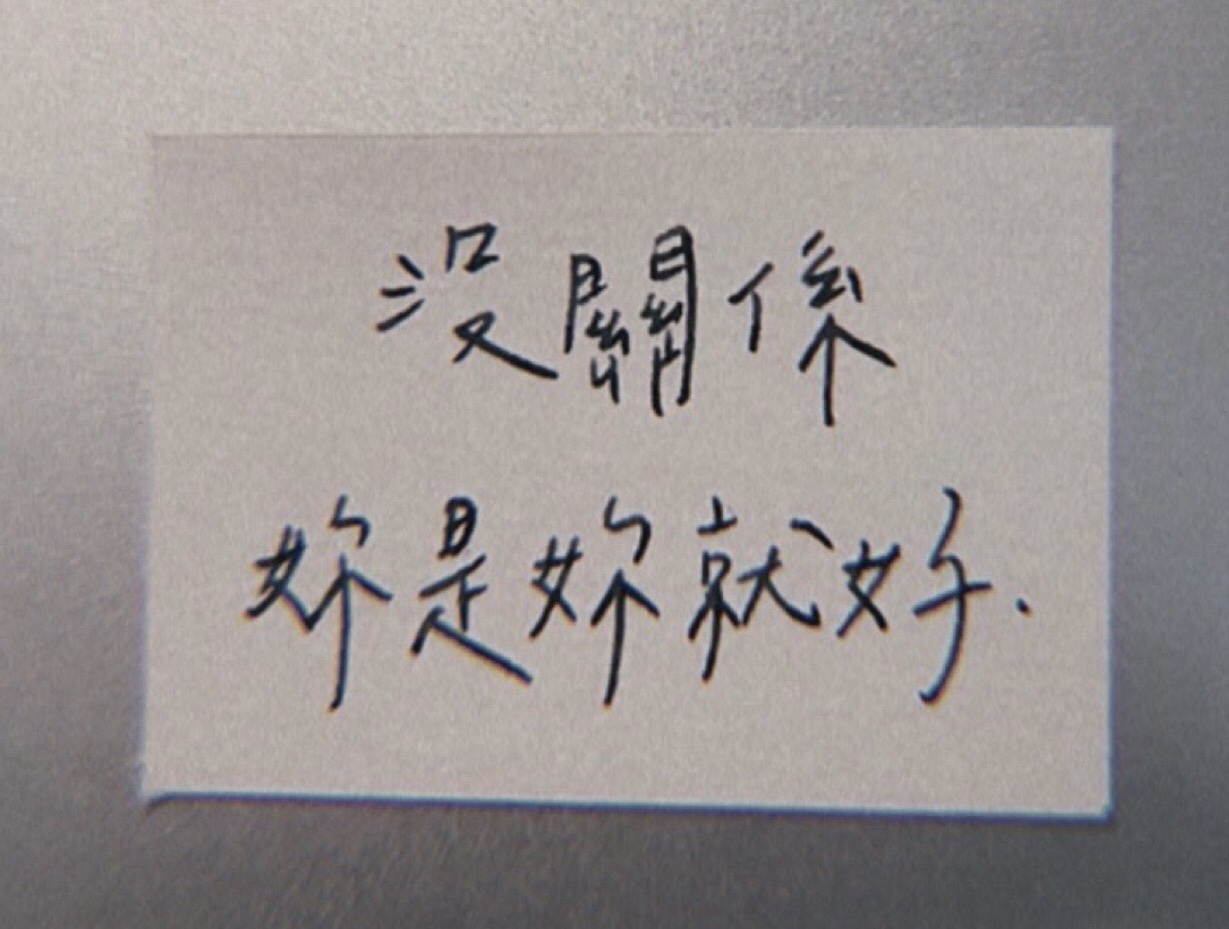 沒關係
妳是妳就好.